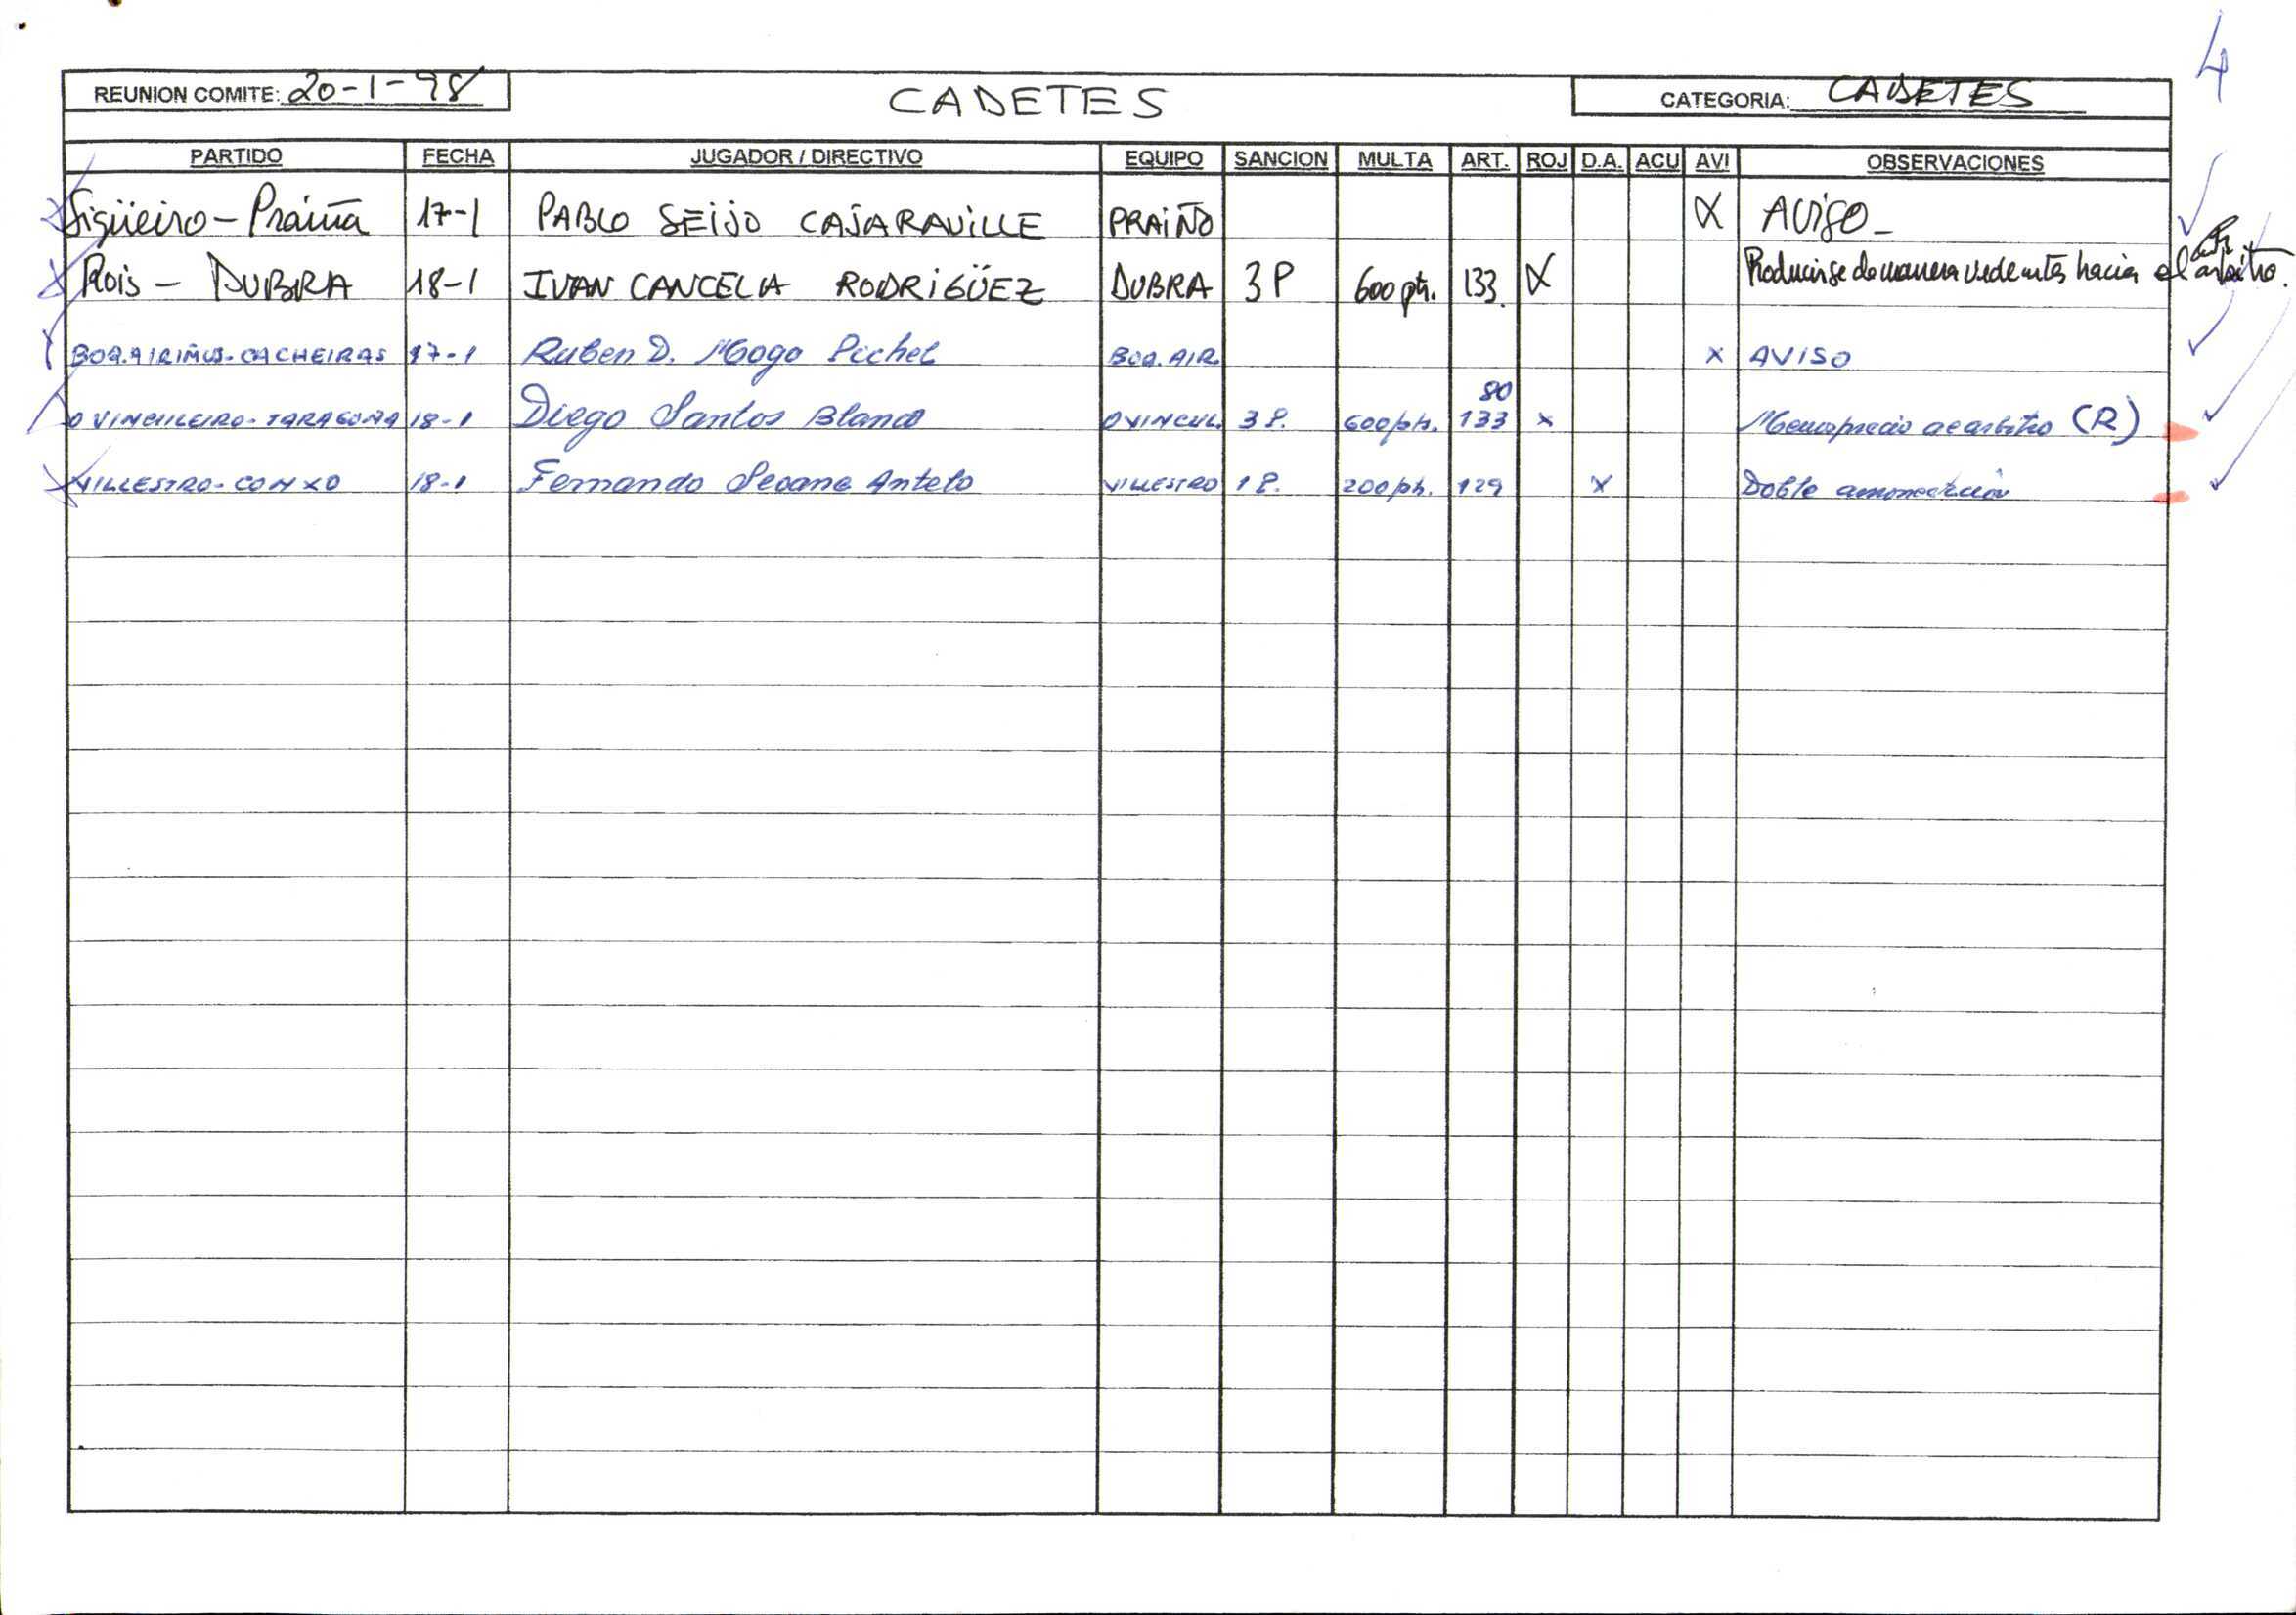 4
REUNION COMITE: 20-1-98 CADETES CATEGORIA: CADETES
PARTIDO FECHA JUGADOR / DIRECTIVO EQUIPO SANCION MULTA ART. ROJ D.A. ACU AVI OBSERVACIONES
Sigüeiro - Praiña 17-1 PABLO SEIJO CAJARAVILLE PRAIÑO X AVISO -
Rois - DUBRA 18-1 IVAN CANCELA RODRIGÜEZ DUBRA 3P 600 pts. 133. X Producirse de manera hacia el arbitro.
BOQ. AIRIÑOS - CACHEIRAS 17-1 Ruben D. Mogo Pichel BOQ. AIR. X AVISO
80
O VINCULEIRO - TARAGOÑA 18-1 Diego Santos Blanco O VINCUL. 3 P. 600 pts. 133 X Menosprecio al arbitro (R)
VILLESTRO - CONXO 18-1 Fernando Seoane Antelo VILLESTRO 1 P. 200 pts. 129 X Doble amonestación